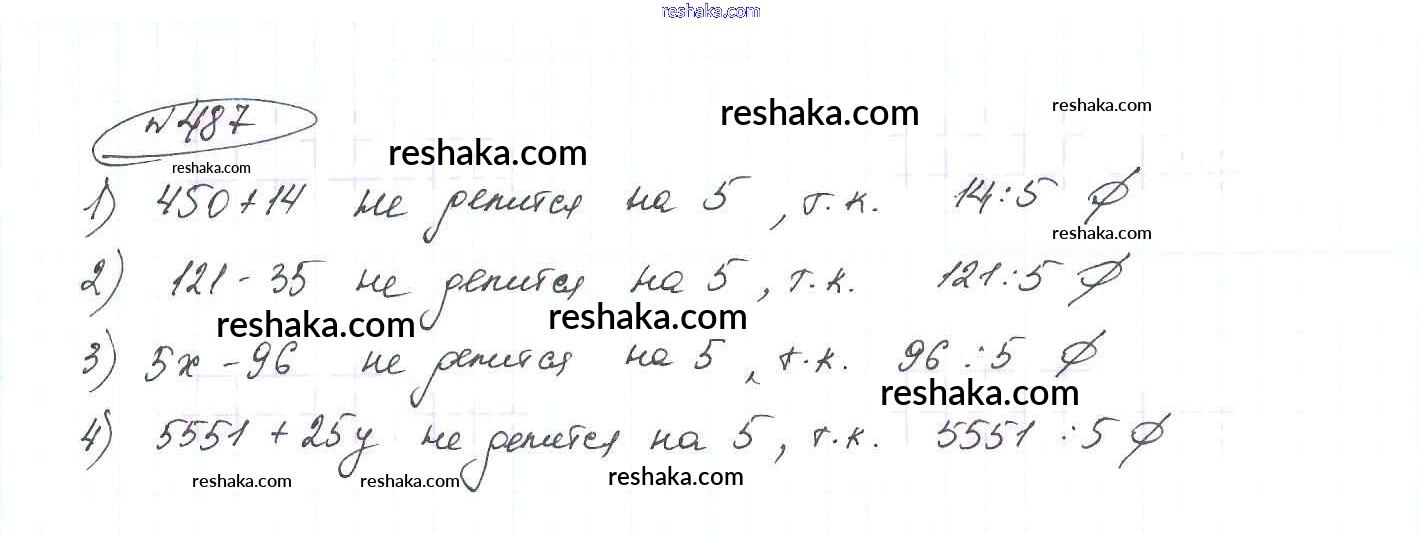 reshaka.com
№487
reshaka.com
reshaka.com
reshaka.com
reshaka.com
1) 450+14 не делится на 5, т.к. 14:5 ∅
reshaka.com
2) 121-35 не делится на 5, т.к. 121:5 ∅
reshaka.com
reshaka.com
3) 5x-96 не делится на 5, т.к. 96:5 ∅
reshaka.com
4) 5551+25y не делится на 5, т.к. 5551:5 ∅
reshaka.com
reshaka.com
reshaka.com